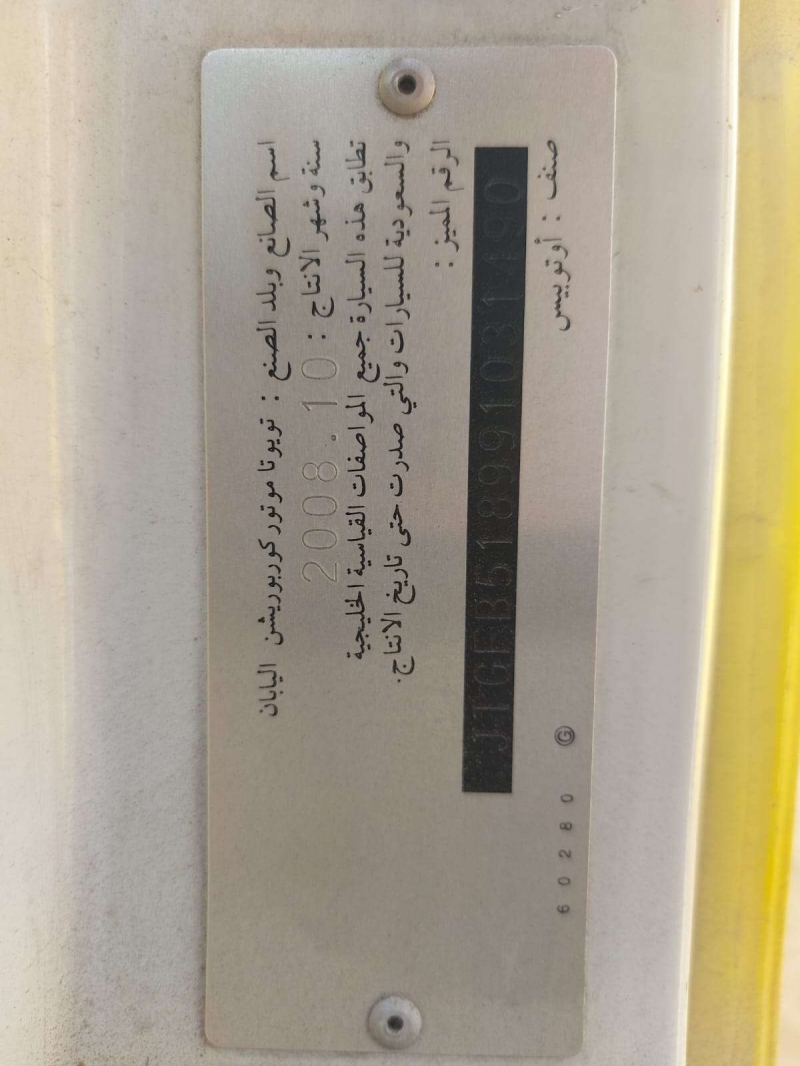 اسم الصانع وبلد الصنع : تويوتا موتور كوربوريشن اليابان
سنة وشهر الانتاج : 2008.10
تطابق هذه السيارة جميع المواصفات القياسية الخليجية
والسعودية للسيارات والتي صدرت حتى تاريخ الانتاج.
الرقم المميز :
JTGFB518991031490
صنف : أوتوبيس
60280 Ⓖ